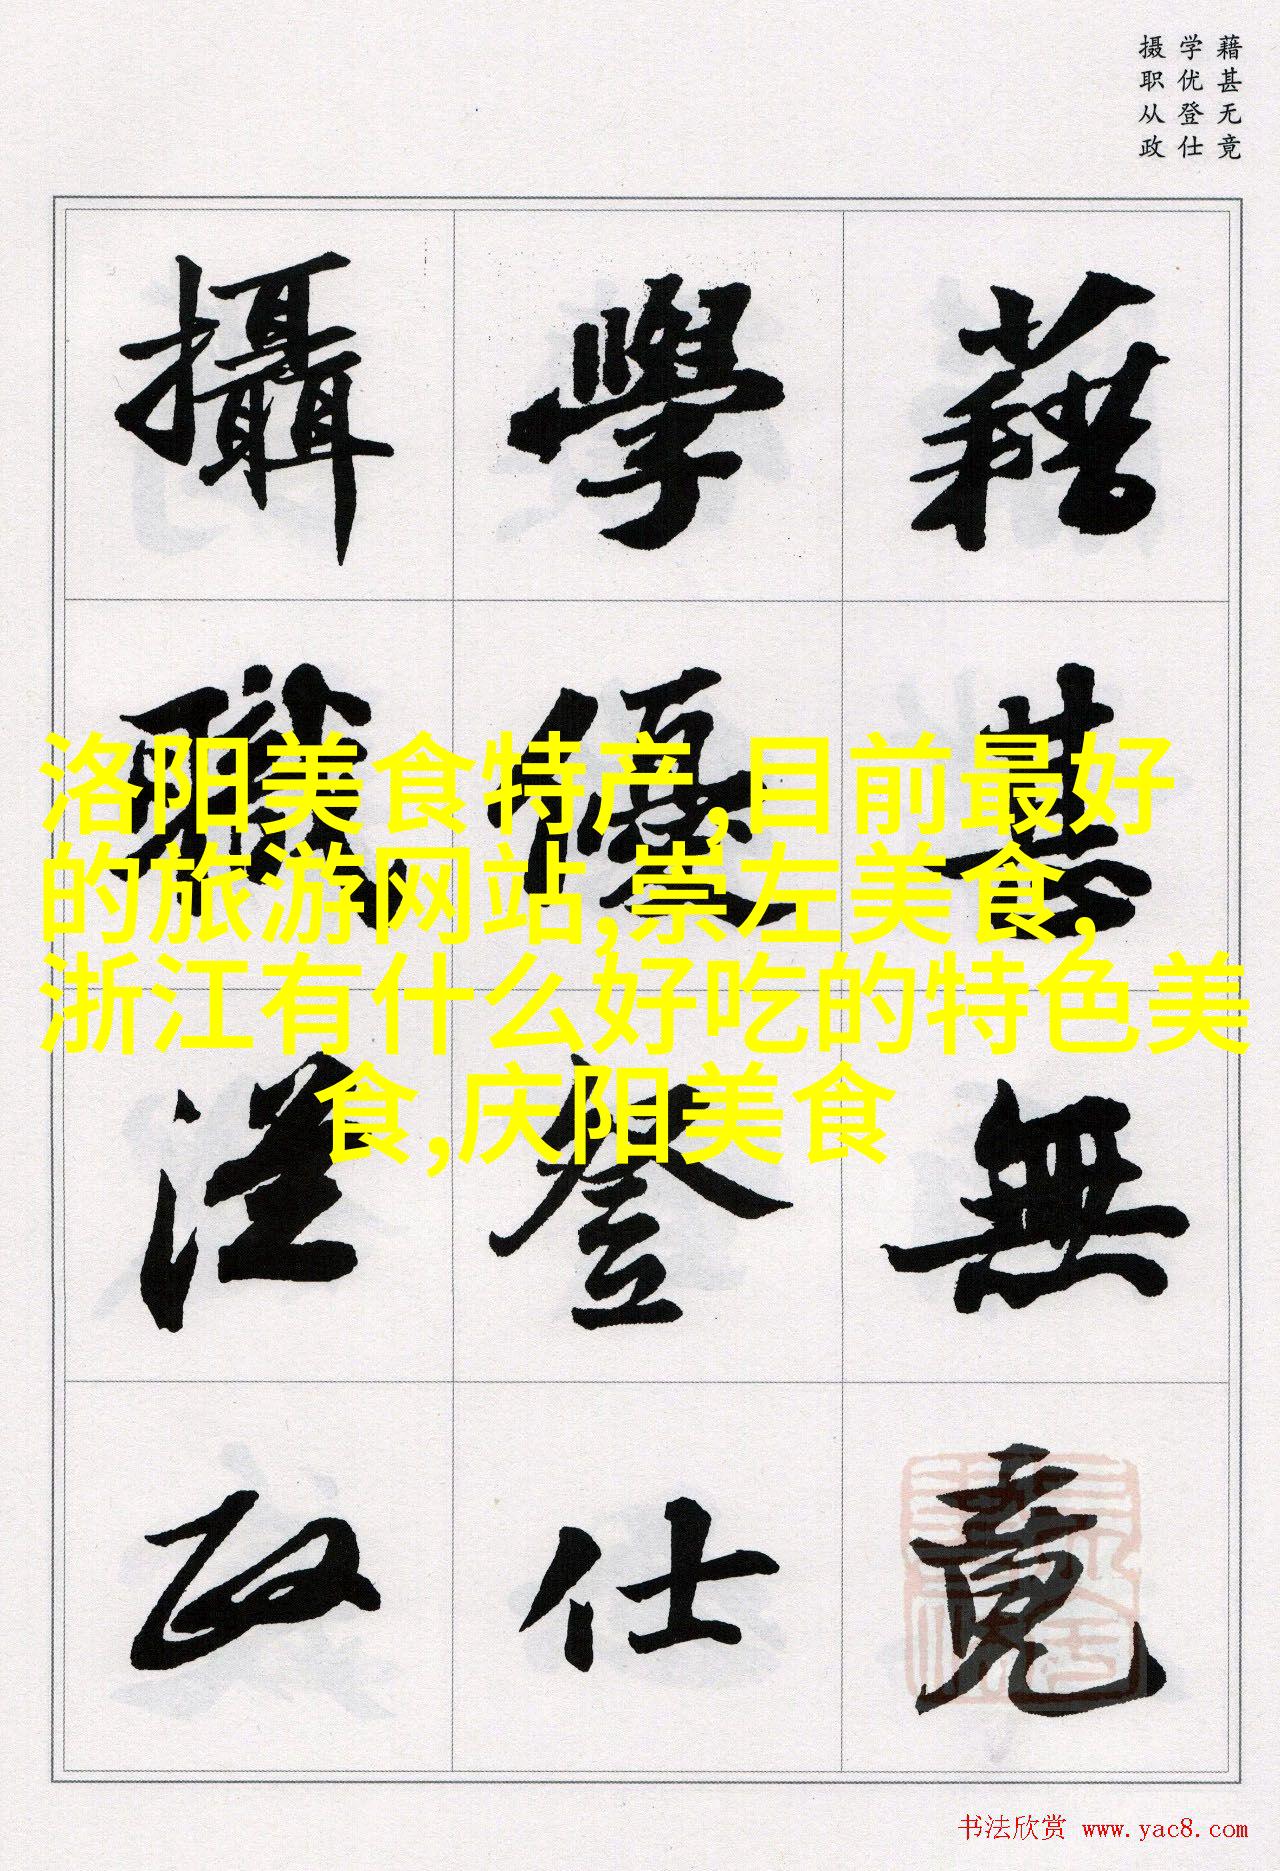 藉甚无竟
学优登仕
摄职从政
藉甚無竟
學優登仕
攝職從政
洛阳美食特产,目前最好
的旅游网站,崇左美食,
浙江有什么好吃的特色美
食,庆阳美食
书法欣赏 www.yac8.com